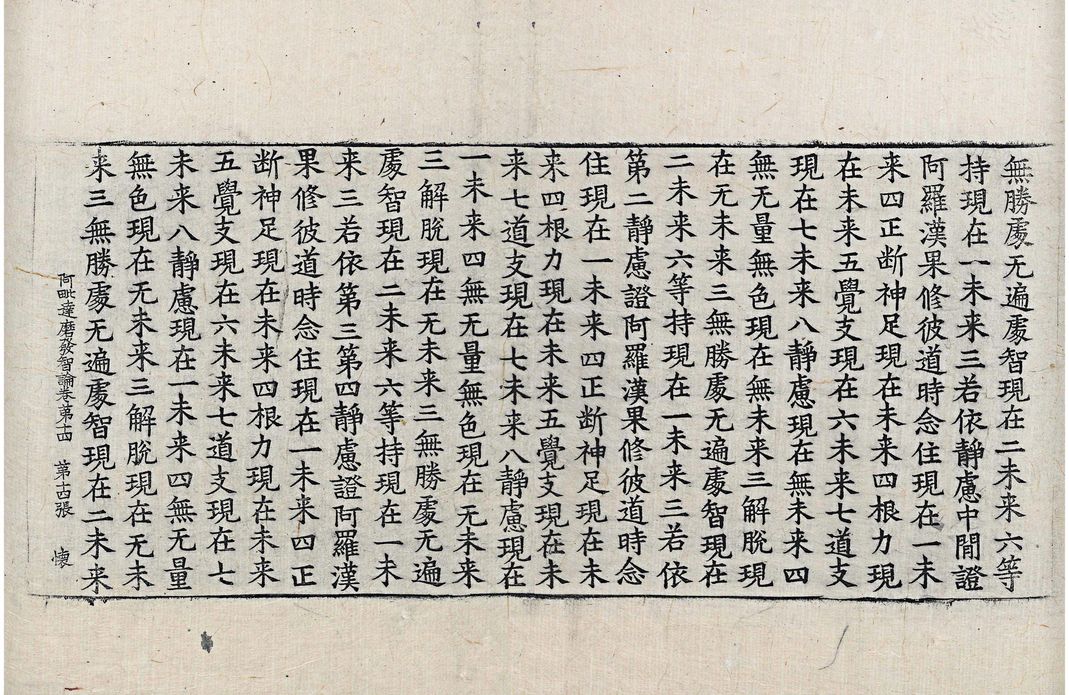 無勝處无遍處智現在二未来六等
持現在一未来三若依靜慮中閒證
阿羅漢果修彼道時念住現在一未
来四正断神足現在未来四根力現
在未来五覺支現在六未来七道支
現在七未来八靜慮現在無未来四
無无量無色現在無未来三解脫現
在无未来三無勝處无遍處智現在
二未来六等持現在一未来三若依
第二靜慮證阿羅漢果修彼道時念
住現在一未来四正断神足現在未
来四根力現在未来五覺支現在未
来七道支現在七未来八靜慮現在
一未来四無无量無色現在无未来
三解脫現在无未来三無勝處无遍
處智現在二未来六等持現在一未
来三若依第三第四靜慮證阿羅漢
果修彼道時念住現在一未来四正
断神足現在未来四根力現在未来
五覺支現在六未来七道支現在七
未来八靜慮現在一未来四無无量
無色現在无未来三解脫現在无未
来三無勝處无遍處智現在二未来
阿毗達磨發智論卷第十四 第十四張 懷